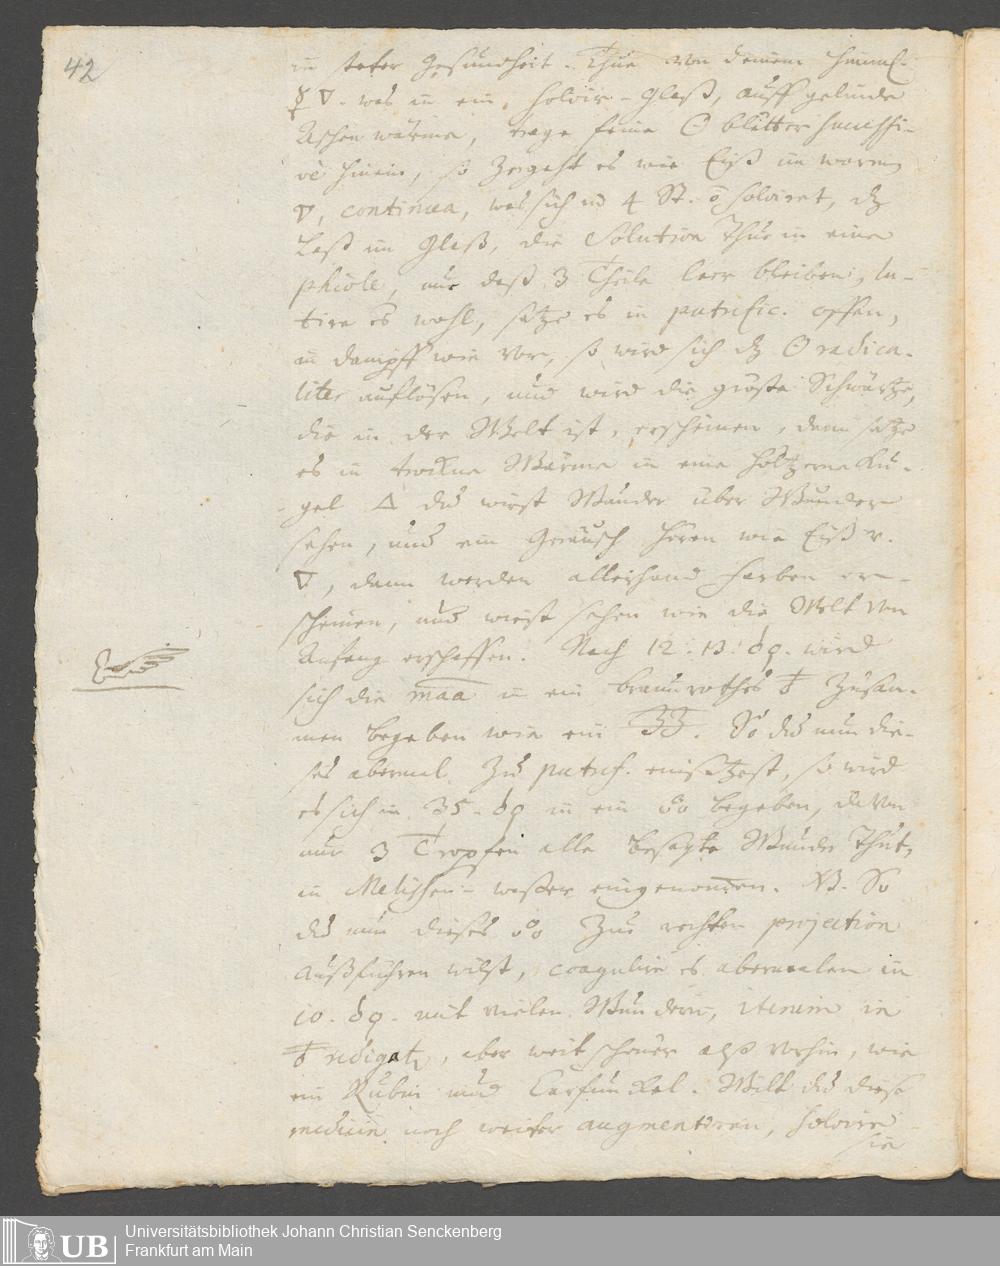 42
in steter Gesundheit. Thue von deinem himml.
☿ ▽. was in ein, Solvir-Glaß, auff gelinde
Aschen wärme, trage feine ☉ blätter successi-
vè hinein, so zergeht es wie Eyß im warmen
▽, continua, was sich in 4 St. ō solviret, dz
laß im Glaß, die Solution thue in eine
phiole, nur daß 3 Theile leer bleiben, lu-
tire es wohl, setze es in putrefic. offen,
in dampff wie vor, so wird sich dz ☉ radica-
liter auflösen, und wird die gröste Schwärtze,
die in der Welt ist, erscheinen, dann setze
es in trockne Wärme in eine höltzerne Ku-
gel △ du wirst Wunder über Wunder
sehen, und ein Geräusch hören wie Eyß v.
▽, dann werden allerhand farben er-
scheinen, und wirst sehen wie die Welt von
Anfang erschaffen. Nach 12. 13. dg. wird
sich die maa in ein braunrothes ♁ zusam-
men begeben wie ein. So du nun die-
ses abermal zu putref. einsetzest, so wird
es sich in 35. dg in ein begeben, davon
nur 3 Tropfen alle besagte Wunder thut,
in Melissen-wasser eingenommen. NB. So
du nun dieses zur rechten projection
außführen wilst, coagulire es abermalen in
10. dg. mit vielen Wundern, iterum in
redigat, aber weit schöner alß vorhin, wie
ein Rubin und Carfunckel. Wilt du diese
medicin noch weiter augmentiren, solvire
sie
Universitätsbibliothek Johann Christian Senckenberg
Frankfurt am Main
UB